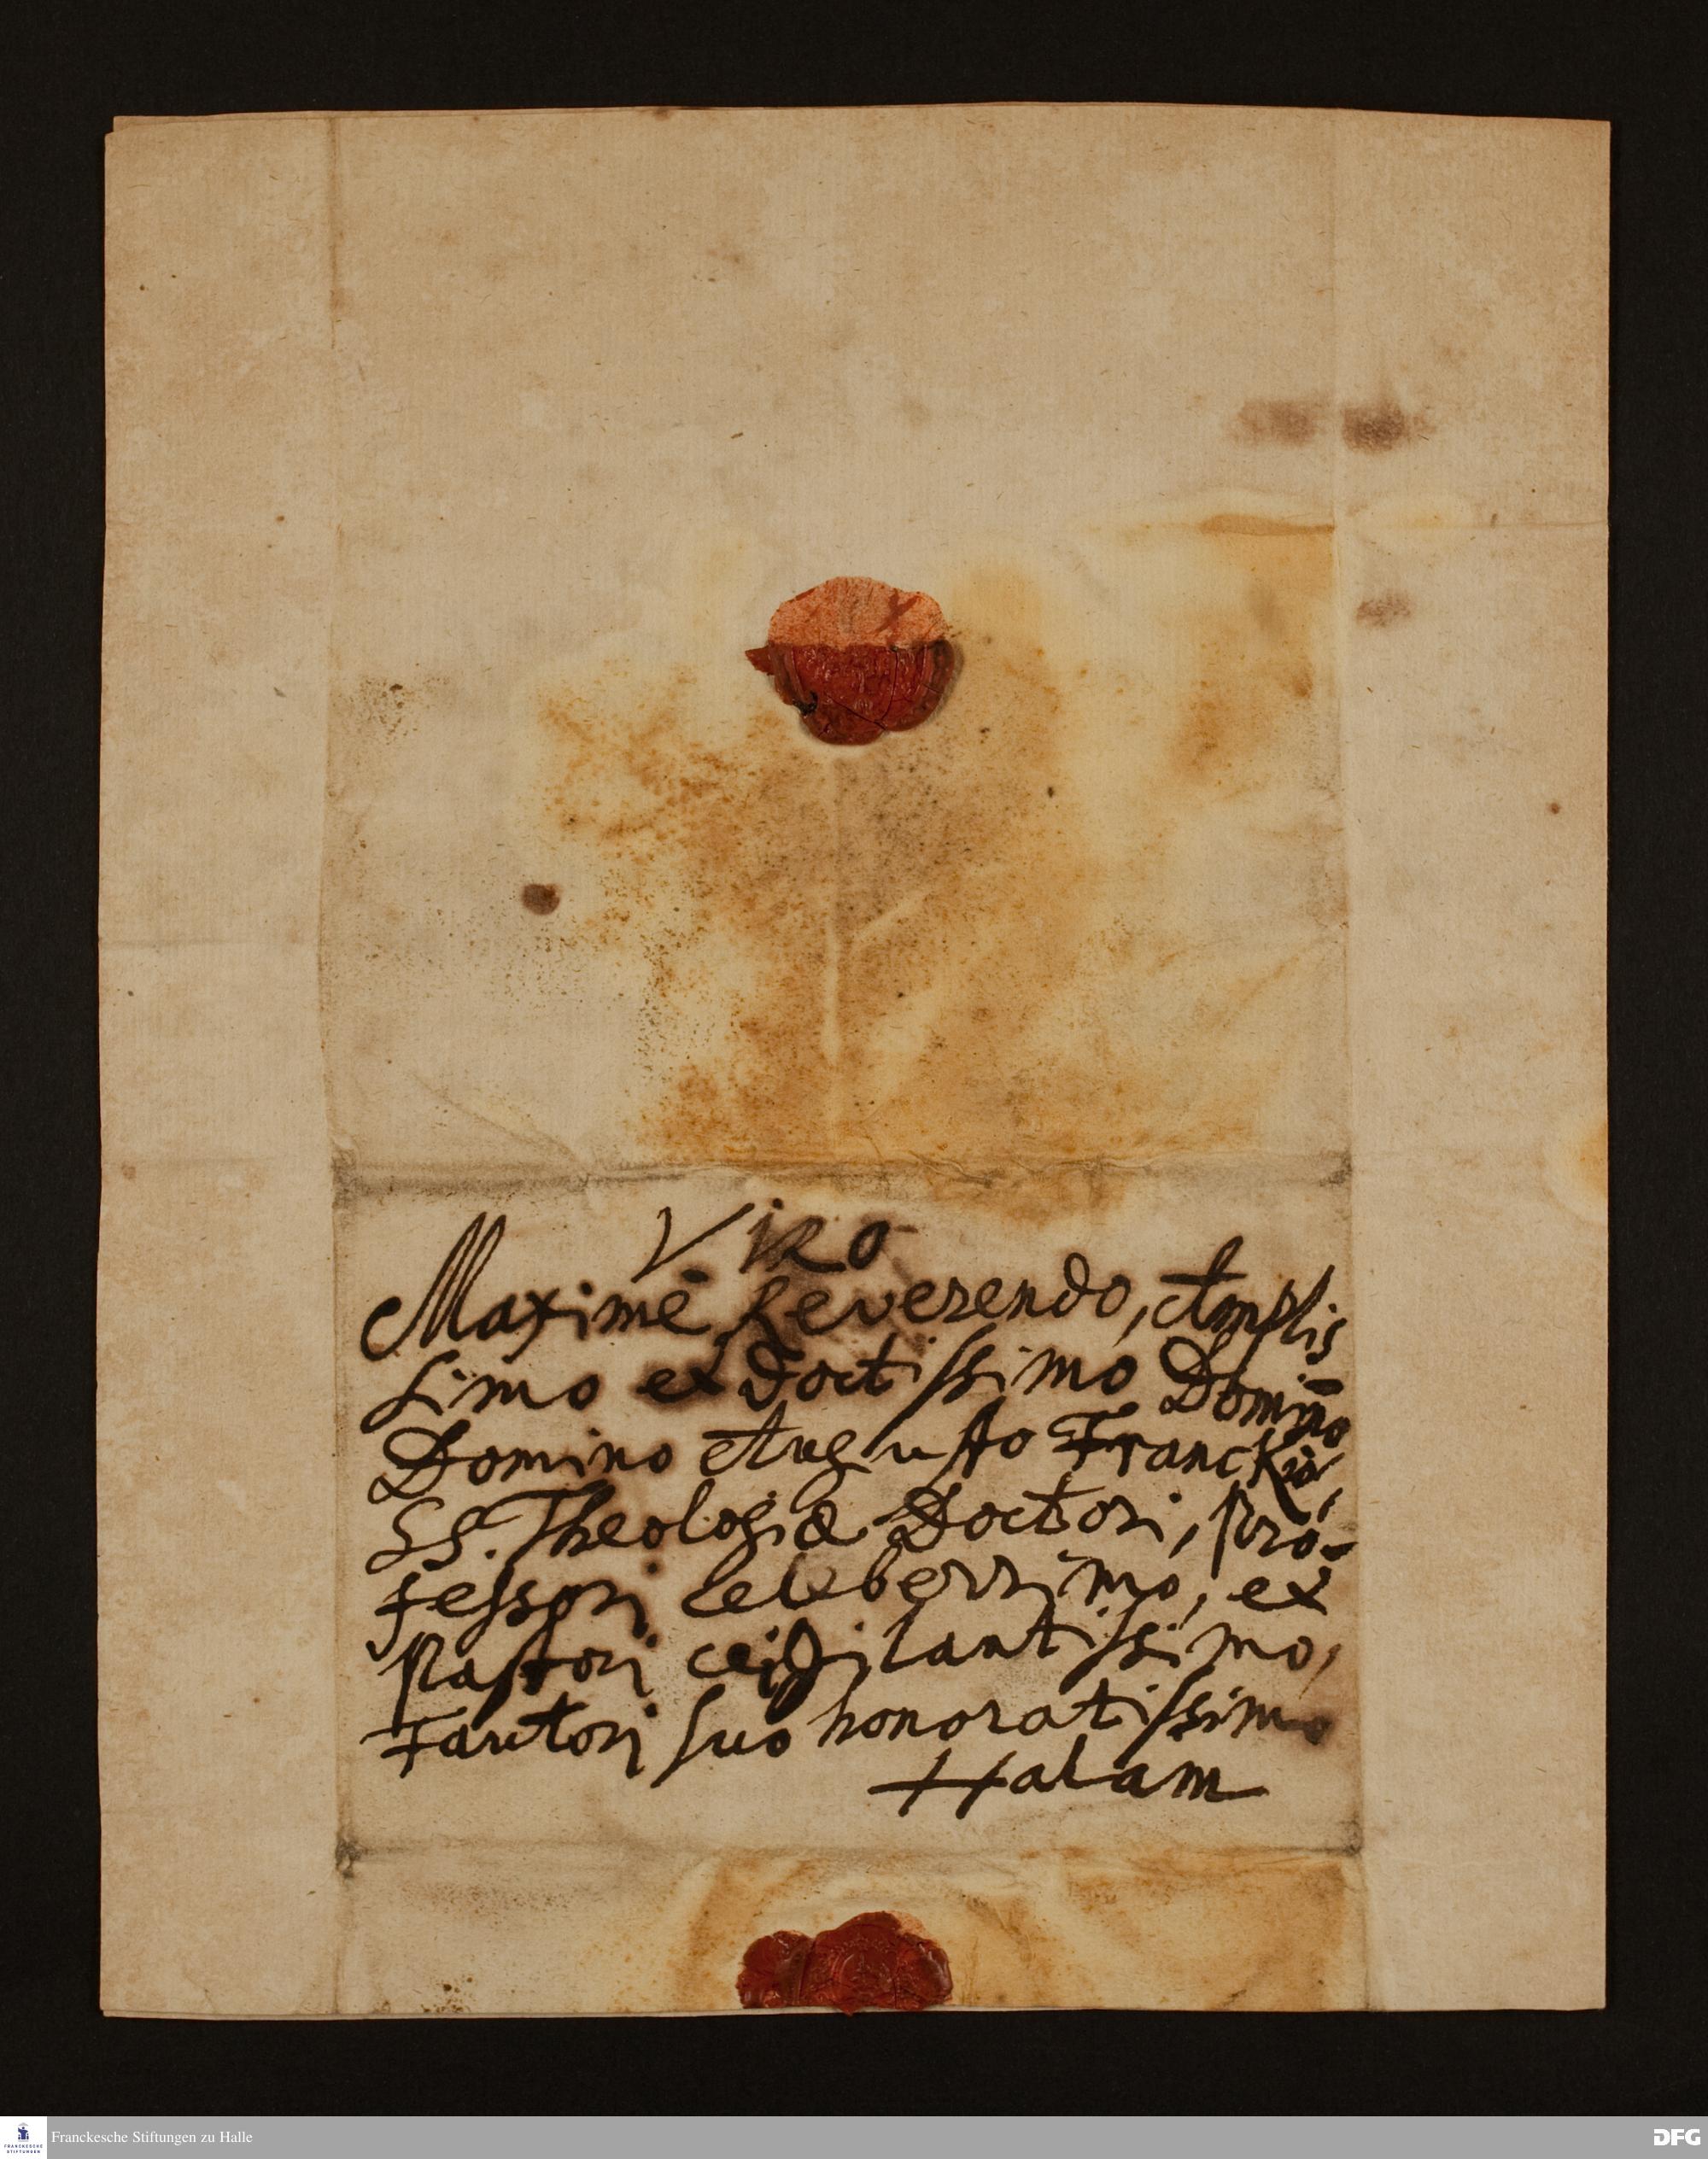 Viro
Maximè Reverendo, Amplis
simo et Doctissimo Domino
Domino Augusto Franckio,
SS. Theologiæ Doctori, Pro-
fessori celeberrimo, et
Pastori vigilantissimo,
Fautori suo honoratissimo
Halam
FRANCKESCHE
STIFTUNGEN
Franckesche Stiftungen zu Halle
DFG